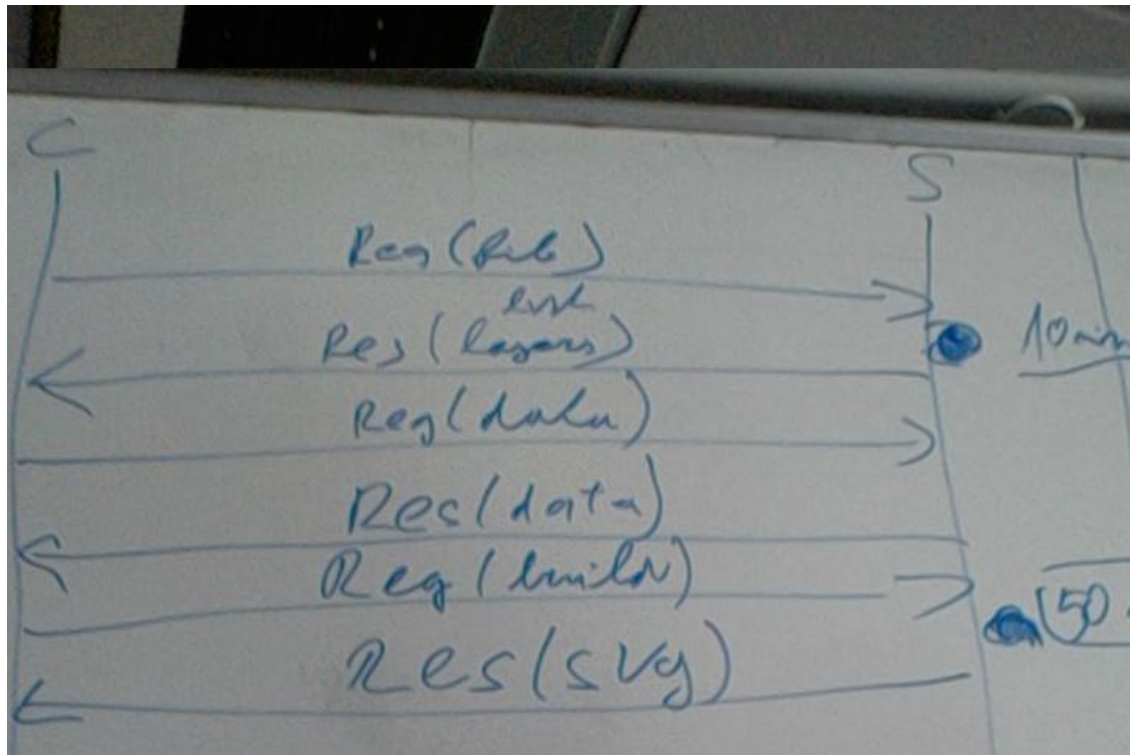 C
S
Req (file)
Res (layers)
10 min
Req (data)
Res (data)
Req (build)
50
Res (svg)